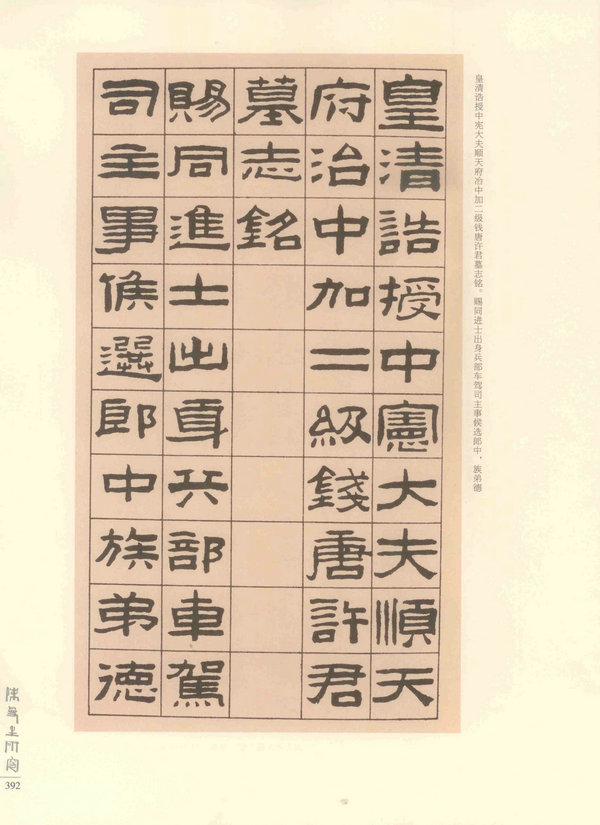 皇清诰授中宪大夫顺天府治中加二级钱唐许君墓志铭。赐同进士出身兵部车驾司主事候选郎中，族弟德
皇清誥授中憲大夫順天
府治中加二級錢唐許君
墓志銘
賜同進士出身兵部車駕
司主事候選郎中族弟德
392